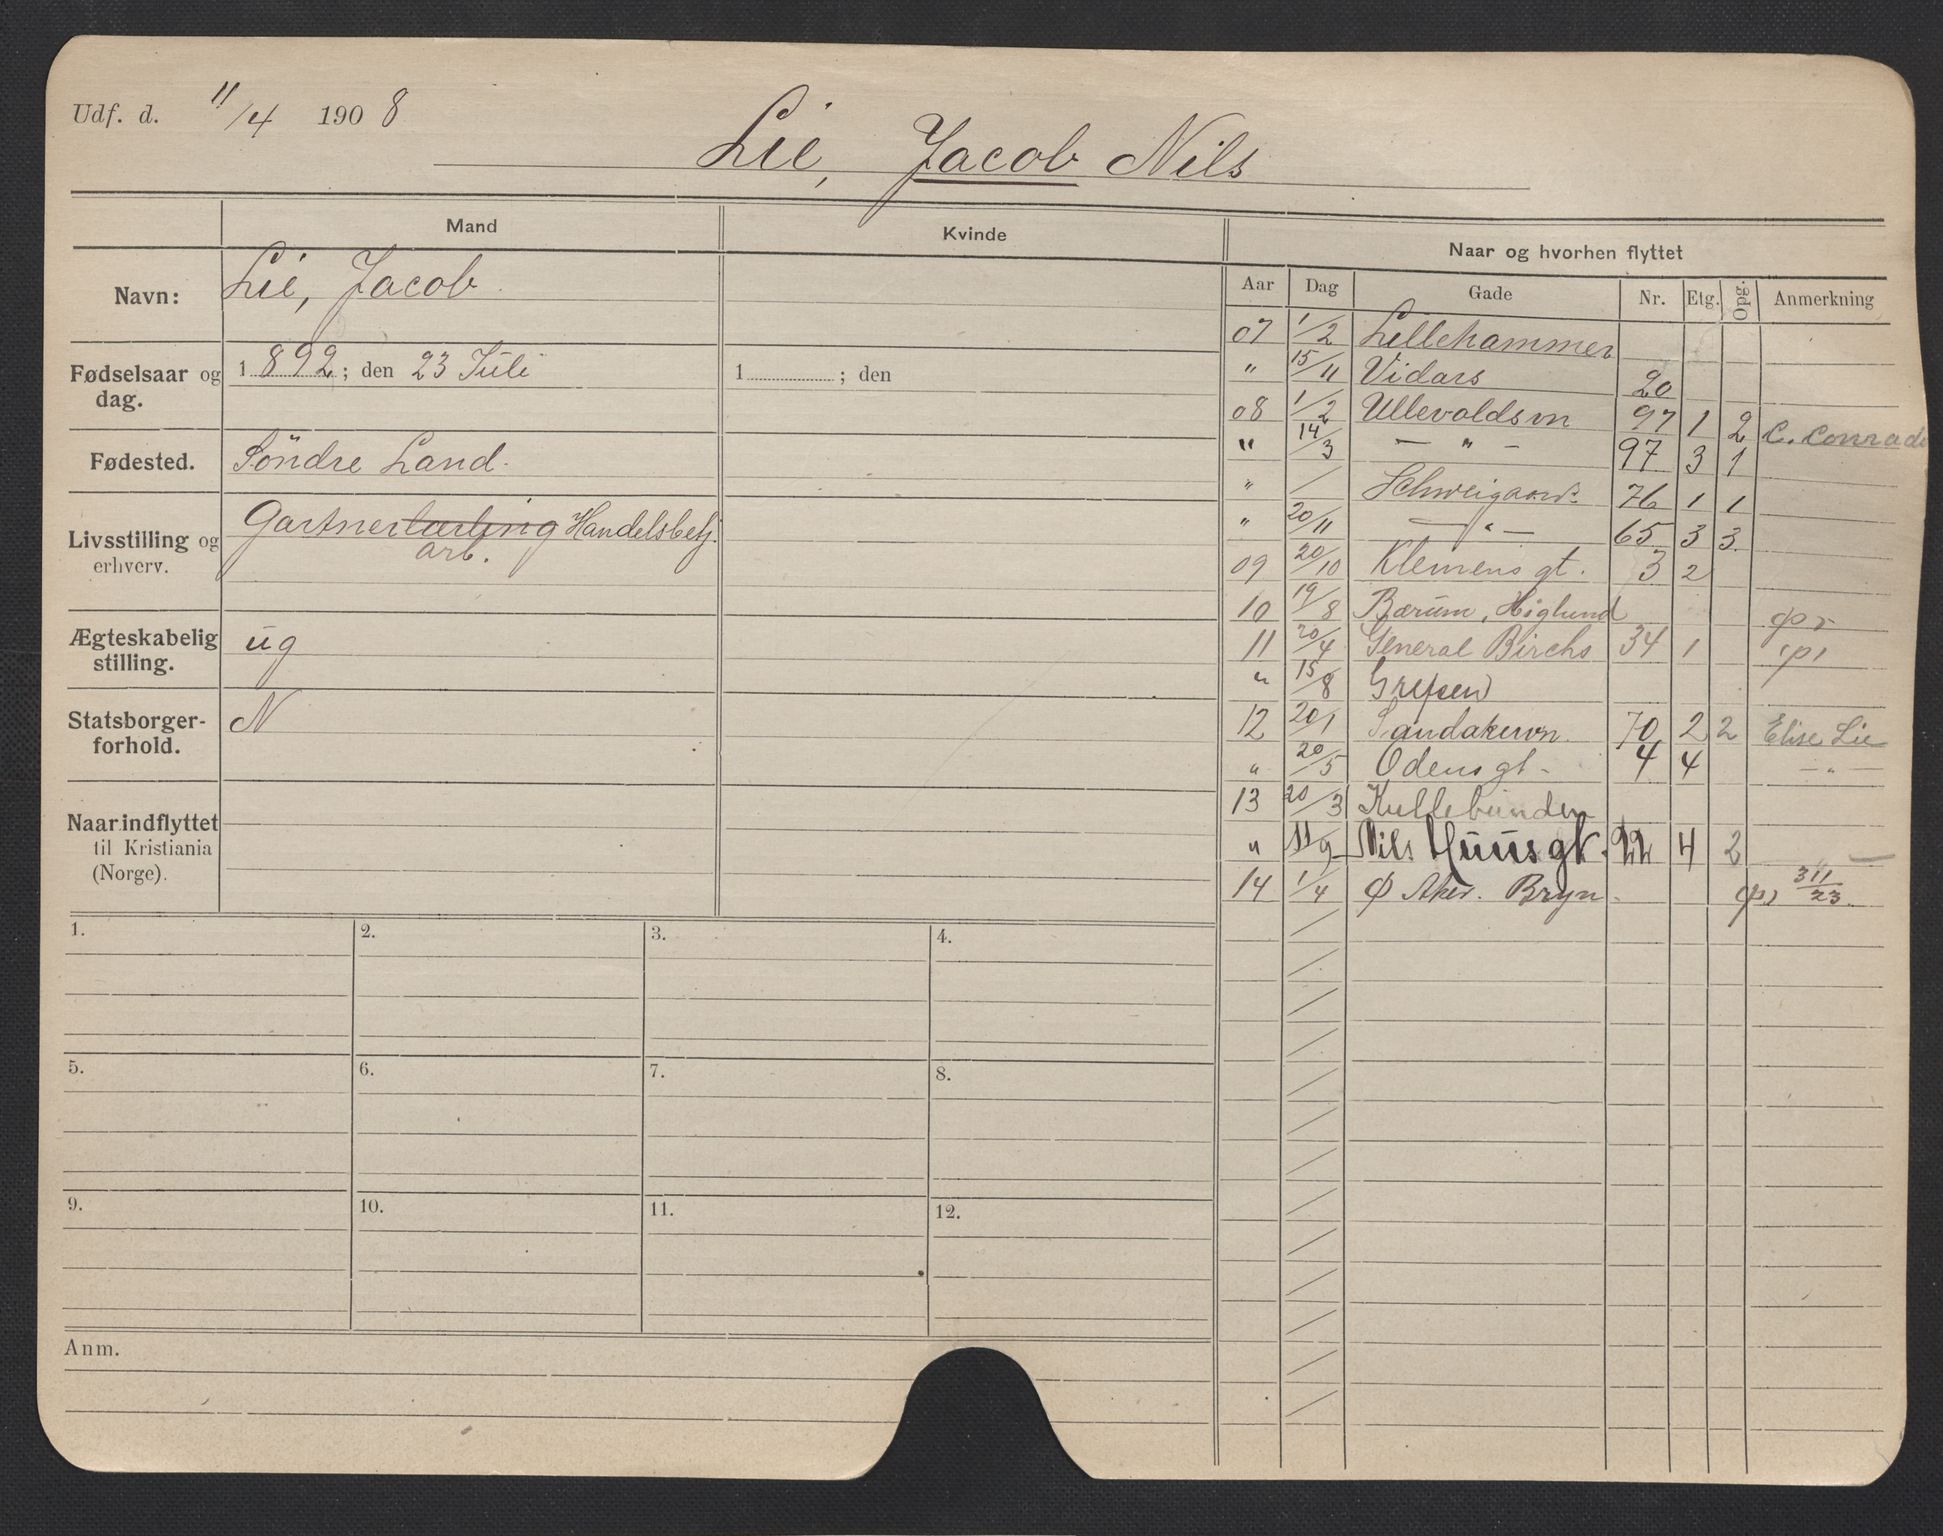 Udf. d. 11/4 1908
Lie, Jacob Nils
Mand
Kvinde
Naar og hvorhen flyttet
Navn: Lie, Jacob
Fødselsaar og dag. 1892; den 23 Juli
1 ; den
Fødested. Söndre Land.
Livsstilling og erhverv. Gartnerlærling Handelsbetj.
arb.
Ægteskabelig stilling. ug
Statsborger-forhold. N
Naar indflyttet til Kristiania (Norge).
Aar Dag Gade Nr. Etg. Opg. Anmerkning
07 1/2 Lillehammer
" 15/11 Vidars 20
08 1/2 Ullevoldsvn 97 1 2 C. Conrade
" 14/3 — " — 97 3 1
" / Schweigaards 76 1 1
" 20/11 — " — 65 3 3
09 20/10 Klemens gt. 3 2
10 19/8 Bærum, Höglund
11 20/4 General Birchs 34 1
" 15/8 Grefsen
12 20/1 Sandakervn. 70 2 2 Elise Lie
" 20/5 Odens gt. 4 4 — " —
13 20/3 Kullebunden
" 11/9 Nils Huus gt. 22 4 2 —
14 1/4 Ø Aker. Bryn. 311/23.
1. 2. 3. 4.
5. 6. 7. 8.
9. 10. 11. 12.
Anm.